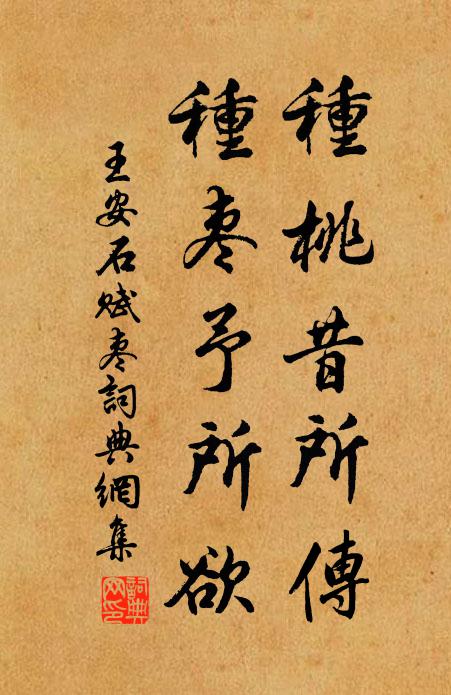 種桃昔所傳
種棗予所欲
王安石賦棗詞典網集
詞典
网印